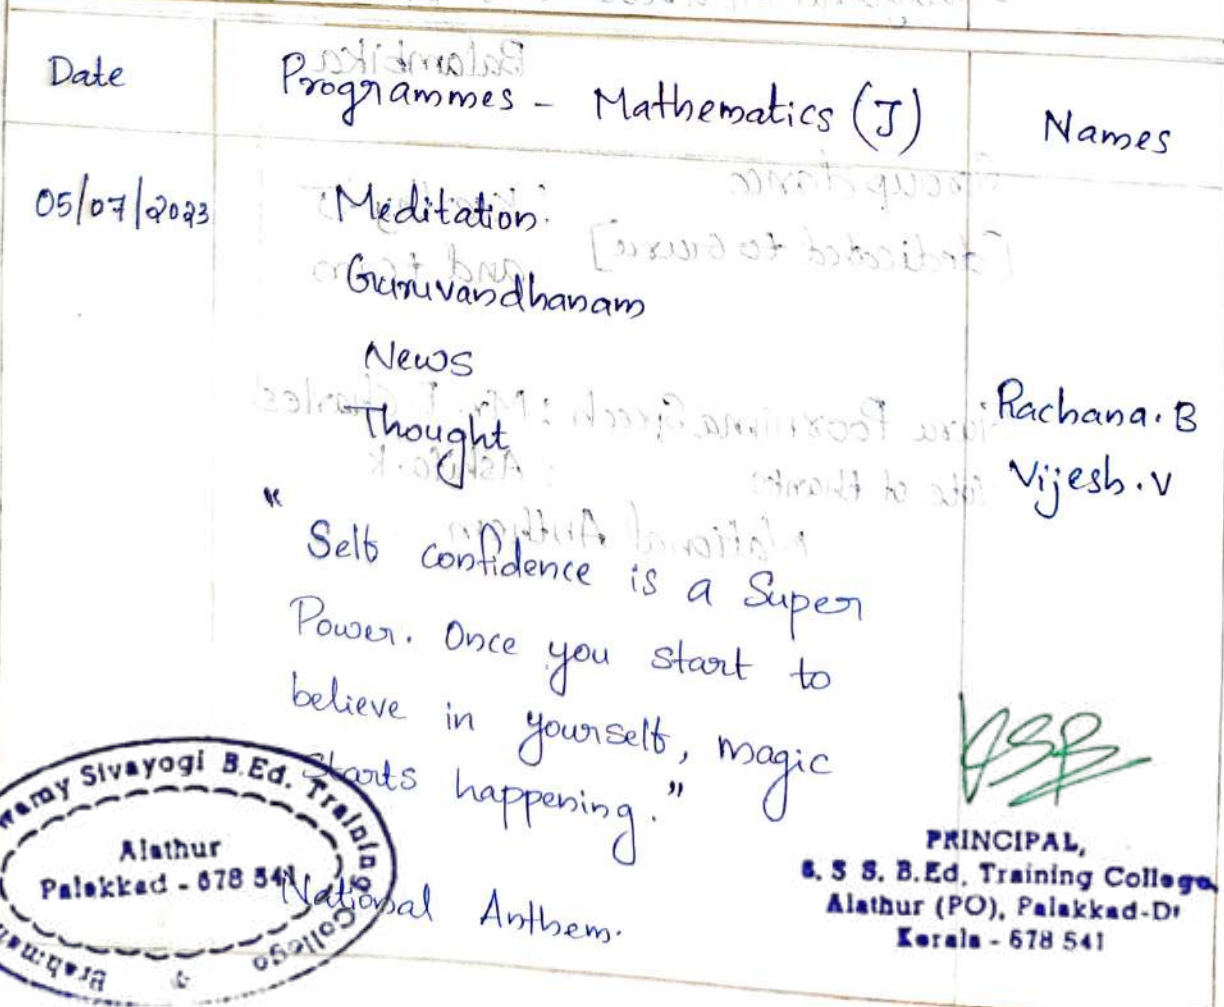 Date Programmes - Mathematics (J) Names
05/07/2023 Meditation.
Guruvandhanam
News
Thought Rachana. B
Vijesh. V
"
Self confidence is a Super
Power. Once you start to
believe in yourself, magic
Starts happening."
National Anthem.
Sivayogi B.Ed. Training College
Alathur
Palakkad - 678 541
PRINCIPAL,
S. S S. B.Ed, Training College,
Alathur (PO), Palakkad-Dt
Kerala - 678 541